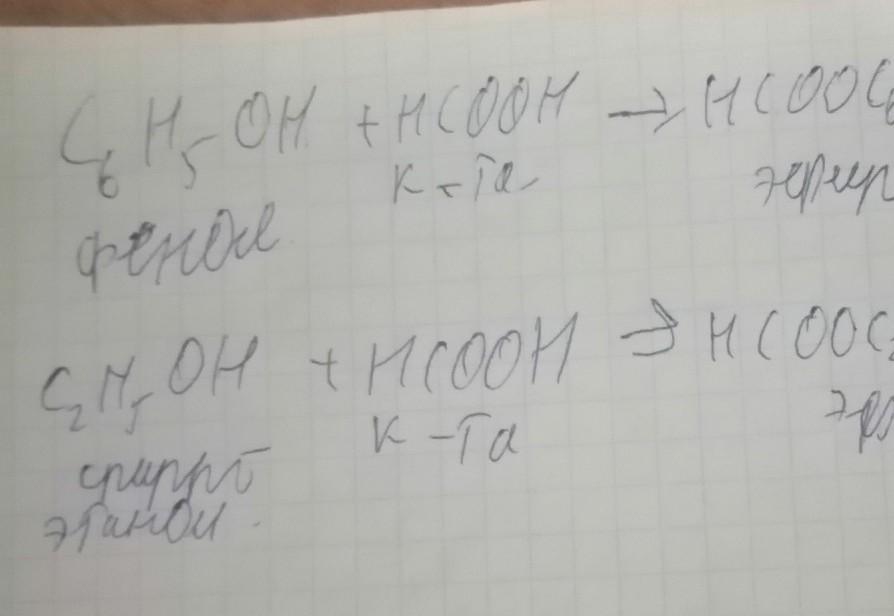 C₆H₅OH + HCOOH → HCOOC₆
к-та эфир
фенол
C₂H₅OH + HCOOH → HCOOC₂
к-та эф
спирт
этанол